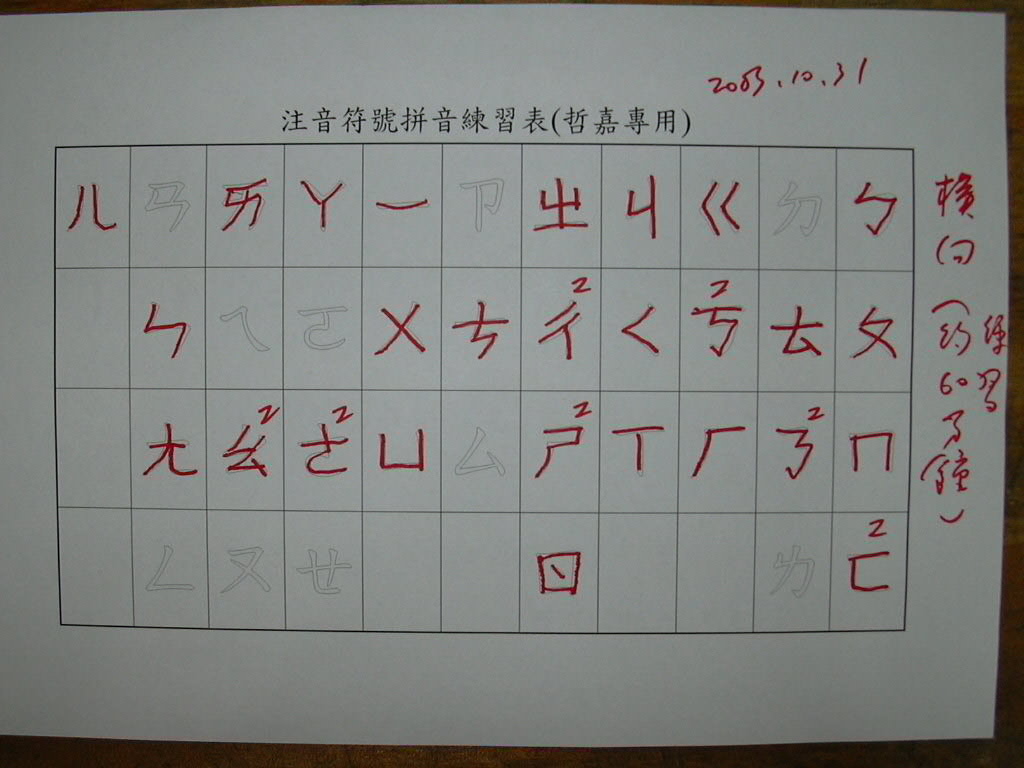 2003.10.31
注音符號拼音練習表(哲嘉專用)
ㄦ ㄢ ㄞ ㄚ ㄧ ㄗ ㄓ ㄐ ㄍ ㄉ ㄅ
ㄣ ㄟ ㄛ ㄨ ㄘ ㄔ2 ㄑ ㄎ2 ㄊ ㄆ
ㄤ ㄠ2 ㄜ2 ㄩ ㄙ ㄕ2 ㄒ ㄏ ㄋ2 ㄇ
ㄥ ㄡ ㄝ ㄖ ㄌ ㄈ2
橫向(約60分鐘)
練習